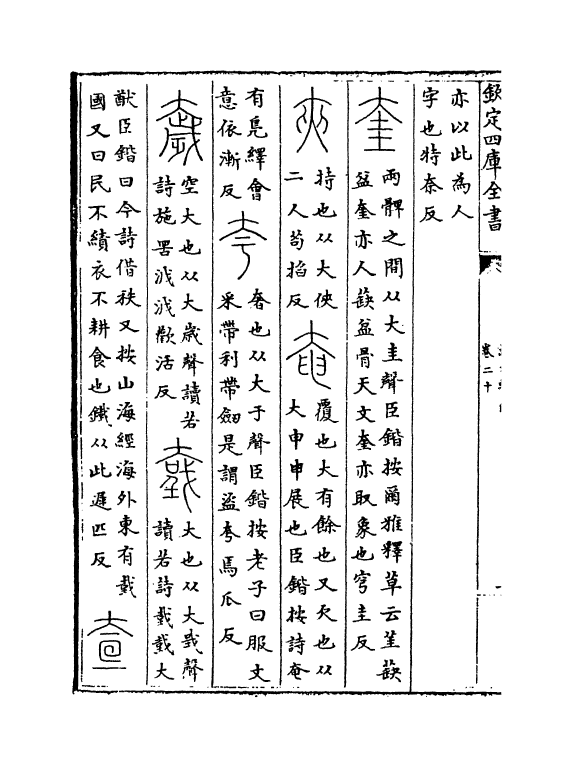 欽定四庫全書
卷二十
亦以此為人
字也特奈反
奎
兩髀之間从大圭聲臣鍇按爾雅釋草云茥蒛
盆奎亦人蒛盆骨天文奎亦取象也穹圭反
夾
持也从大俠
二人苟掐反
奄
覆也大有餘也又欠也从
大申申展也臣鍇按詩奄
有凫繹會
意依漸反
夸
奢也从大于聲臣鍇按老子曰服文
采帶利帶劒是謂盜夸焉瓜反
奯
空大也从大歲聲讀若
詩施罟泧泧歡活反
大也从大𢧤聲
讀若詩臷臷大
猷臣鍇曰今詩借秩又按山海經海外東有臷
國又曰民不績衣不耕食也鐵从此遲匹反